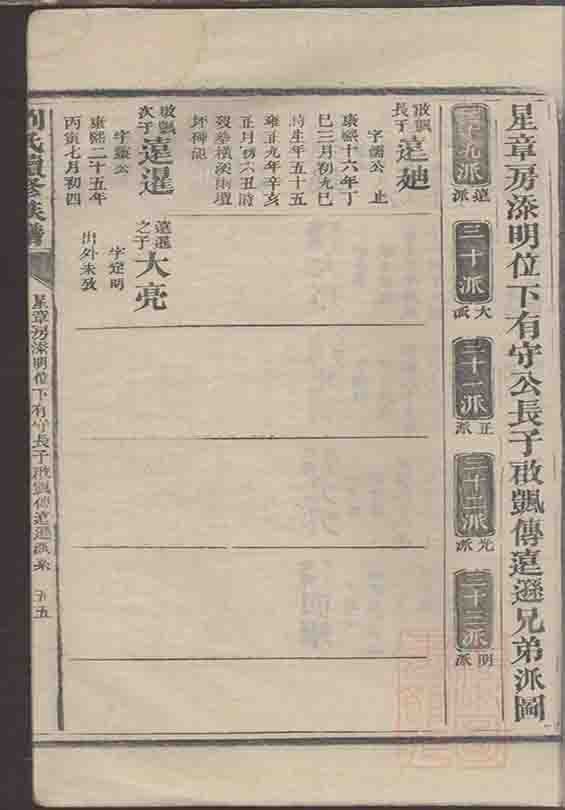 星章房添明位下有守公長子敢凱傳遠遜兄弟派圖
二十九派
遠派
三十派
大派
三十一派
正派
三十二派
光派
三十三派
明派
敢凱
長子
字儒公 止
康熙十六年丁
巳三月初九巳
時生年五十五
雍正九年辛亥
正月初六丑時
歿葬橫溪雨壇
坪碑記
敢凱
次子
遠暹
字蓁公
康熙二十五年
丙寅七月初四
遠暹
之子
大亮
字定明
出外未攷
劉氏續修族譜
星章房添明位下有守長子敢凱傳遠遜派系 五五